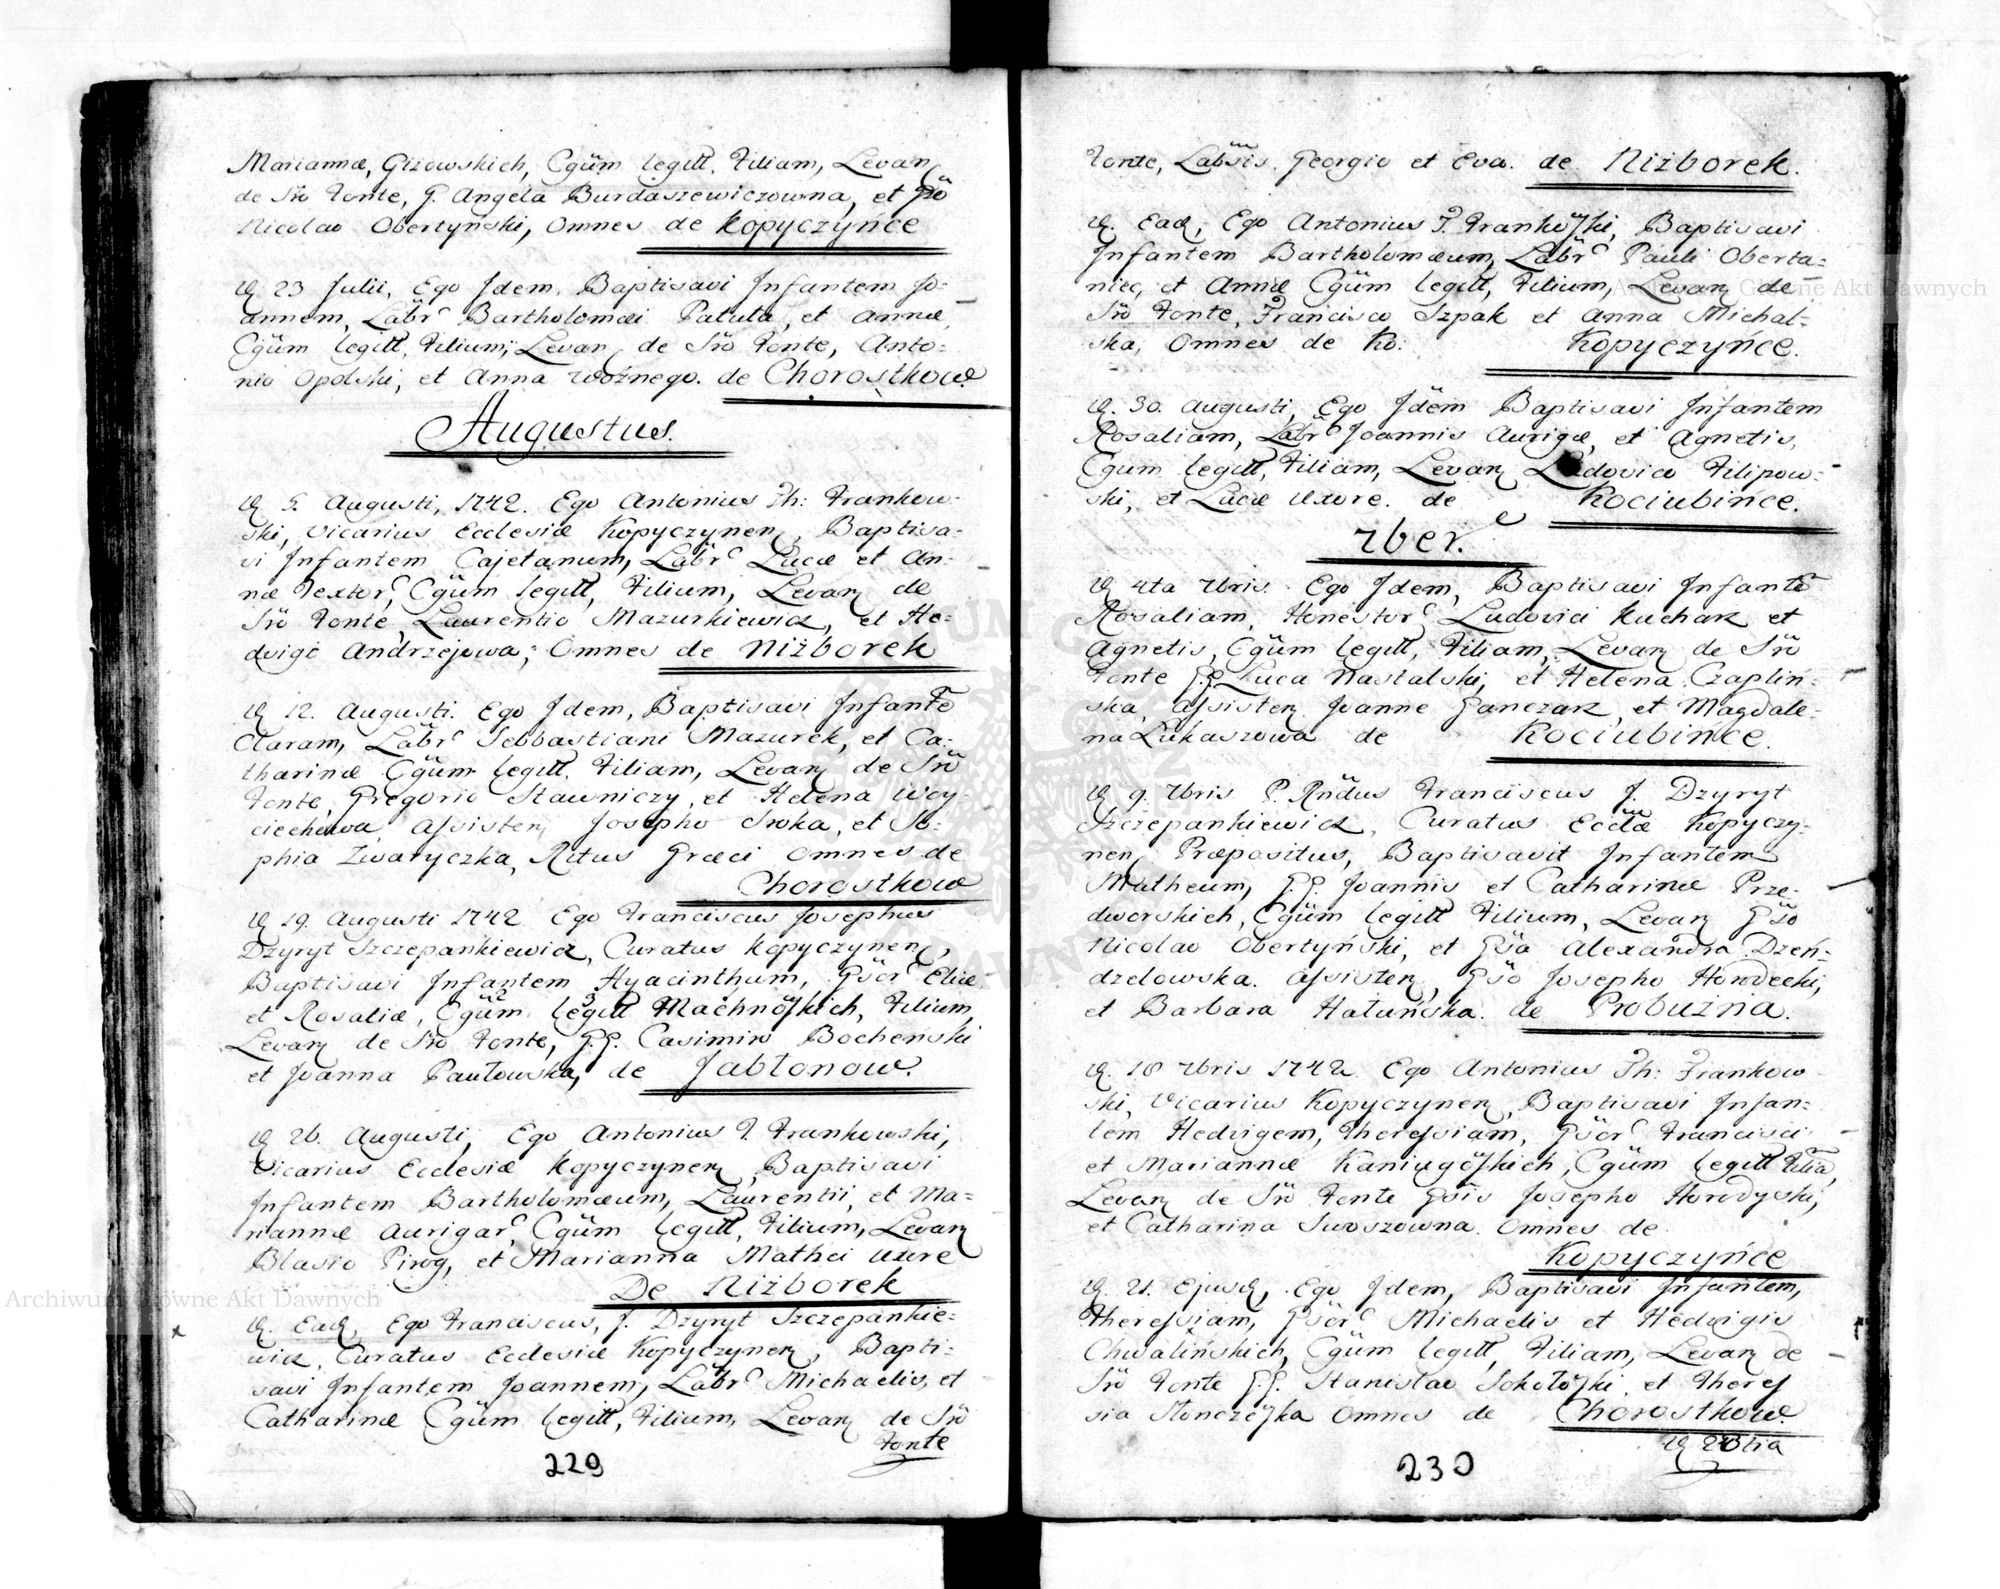 Mariannæ, Gizowskich, Cgũm legitt, Filiam, Levan
de Sro Fonte, G. Angela Burdaszewiczowna, et Gso
Nicolao Obertyński, Omnes de Kopyczyńce
D. 23 Julii, Ego Idem, Baptisavi Infantem Jo=
annem, Labr Bartholomæi Patuła, et Annæ,
Cgũm legitt, Filium, Levan de Sro Fonte, Anto=
nio Opolski, et Anna Woźnego. de Chorostkow
Augustus.
D 5. Augusti, 1742. Ego Antonius Th: Frankow-
ski, Vicarius Ecclesiæ Kopyczynen, Baptisa-
vi Infantem Cajetanum, Labr Lucæ et An-
næ Textor, Cgũm legitt, Filium, Levan de
Sro Fonte, Laurentio Mazurkiewicz, et He=
dvige Andrzejowa; Omnes de Niżborek
D 12. Augusti. Ego Idem, Baptisavi Infantẽ
Claram, Labr Sebbastiani Mazurek, et Ca=
tharinæ Cgũm legitt. Filiam, Levan de Sro
Fonte, Gregorio Stawniczy, et Helena Woy-
ciechowa, Assisten Josepho Sroka, et So=
phia Zwaryczka, Ritus Græci Omnes de
Chorostkow
D 19. Augusti 1742 Ego Franciscus Josephus
Dzyryt Szczepankiewicz, Curatus Kopyczynen,
Baptisavi Infantem Hyacinthum, Gsor Eliæ
et Rosaliæ, Cgũm legitt Machnoskich, Filium,
Levan de Sro Fonte, G.G. Casimiro Bocheński
et Joanna Pawłowska, de Jabłonow.
D 26. Augusti, Ego Antonius T. Frankowski,
Vicarius Ecclesiæ Kopyczynen, Baptisavi
Infantem Bartholomæum, Laurentii, et Ma=
riannæ Aurigar, Cgũm legitt, Filium, Levan
Blasio Pirog, et Marianna Mathei Uxore
De Niżborek
D. Ead, Ego Franciscus, J. Dzyryt Szczepankie=
wicz, Curatus Ecclesiæ Kopyczynen, Bapti=
savi Infantem Joannem, Labr Michaelis, et
Catharinæ Cgũm legitt, Filium, Levan de Sro
Fonte
229
Fonte, Labsis. Georgio et Eva. de Niżborek.
D. Ead, Ego Antonius T. Frankoski, Baptisavi
Infantem Bartholomæum, Labr Pauli Oberta=
niec, et Annæ Cgũm legitt, Filium, Levan de
Sro Fonte, Francisco Szpak et Anna Michal=
ska, Omnes de Ko: Kopyczyńce.
D. 30. Augusti, Ego Idem Baptisavi Infantem
Rosaliam, Labr Joannis Aurigæ, et Agnetis,
Cgum legitt, Filiam, Levan Ludovico Filipow=
ski, et Lucæ Uxore. de Kociubince.
7ber.
D 4ta 7bris. Ego Idem, Baptisavi Infantẽ
Rosaliam, Honestor Ludovici Kucharz et
Agnetis, Cgũm legitt, Filiam, Levan de Sro
Fonte G.G. Luca Nastalski, et Helena Czapliń=
ska, Assisten Joanne Ganczarz, et Magdale=
na Łukaszowa de Kociubince.
D 9. 7bris P. Rñdus Franciscus J. Dzyryt
Szczepankiewicz, Curatus Eccłæ Kopyczy-
nen, Præpositus, Baptisavit Infantem
Matheum, G.G. Joannis et Catharinæ Prze-
dworskich, Cgũm legitt Filium, Levan Gso
Nicolao Obertyński, et Gsa Alexandra Dzeń-
dzelowska. Assisten, Gso Josepho Horodecki,
et Barbara Hatuńska. de Probużna.
D. 18 7bris 1742. Ego Antonius Th: Frankow
ski, Vicarius Kopyczynen, Baptisavi Infan=
tem Hedvigem, Theressiam, Gsor Francisci
et Mariannæ Kaniugoskich, Cgũm legitt Filia,
Levan de Sro Fonte Gsis Josepho Horodyski,
et Catharina Swoszowna. Omnes de
Kopyczyńce
D. 21. Ejusd, Ego Idem, Baptisavi Infantem,
Theressiam, Gsor Michaelis et Hedvigis
Chwalińskich, Cgũm legitt, Filiam, Levan de
Sro Fonte G.G. Stanislao Sokołoski, et Theres
sia Słonczeska Omnes de Chorostkow.
230